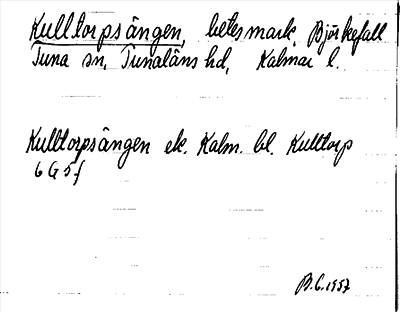 Kulltorpsängen, betesmark, Björkefall
Tuna sn, Tunaläns hd, Kalmar l.
Kulltorpsängen ek. Kalm. bl. Kulltorp
6 G 5f
B.C. 1957